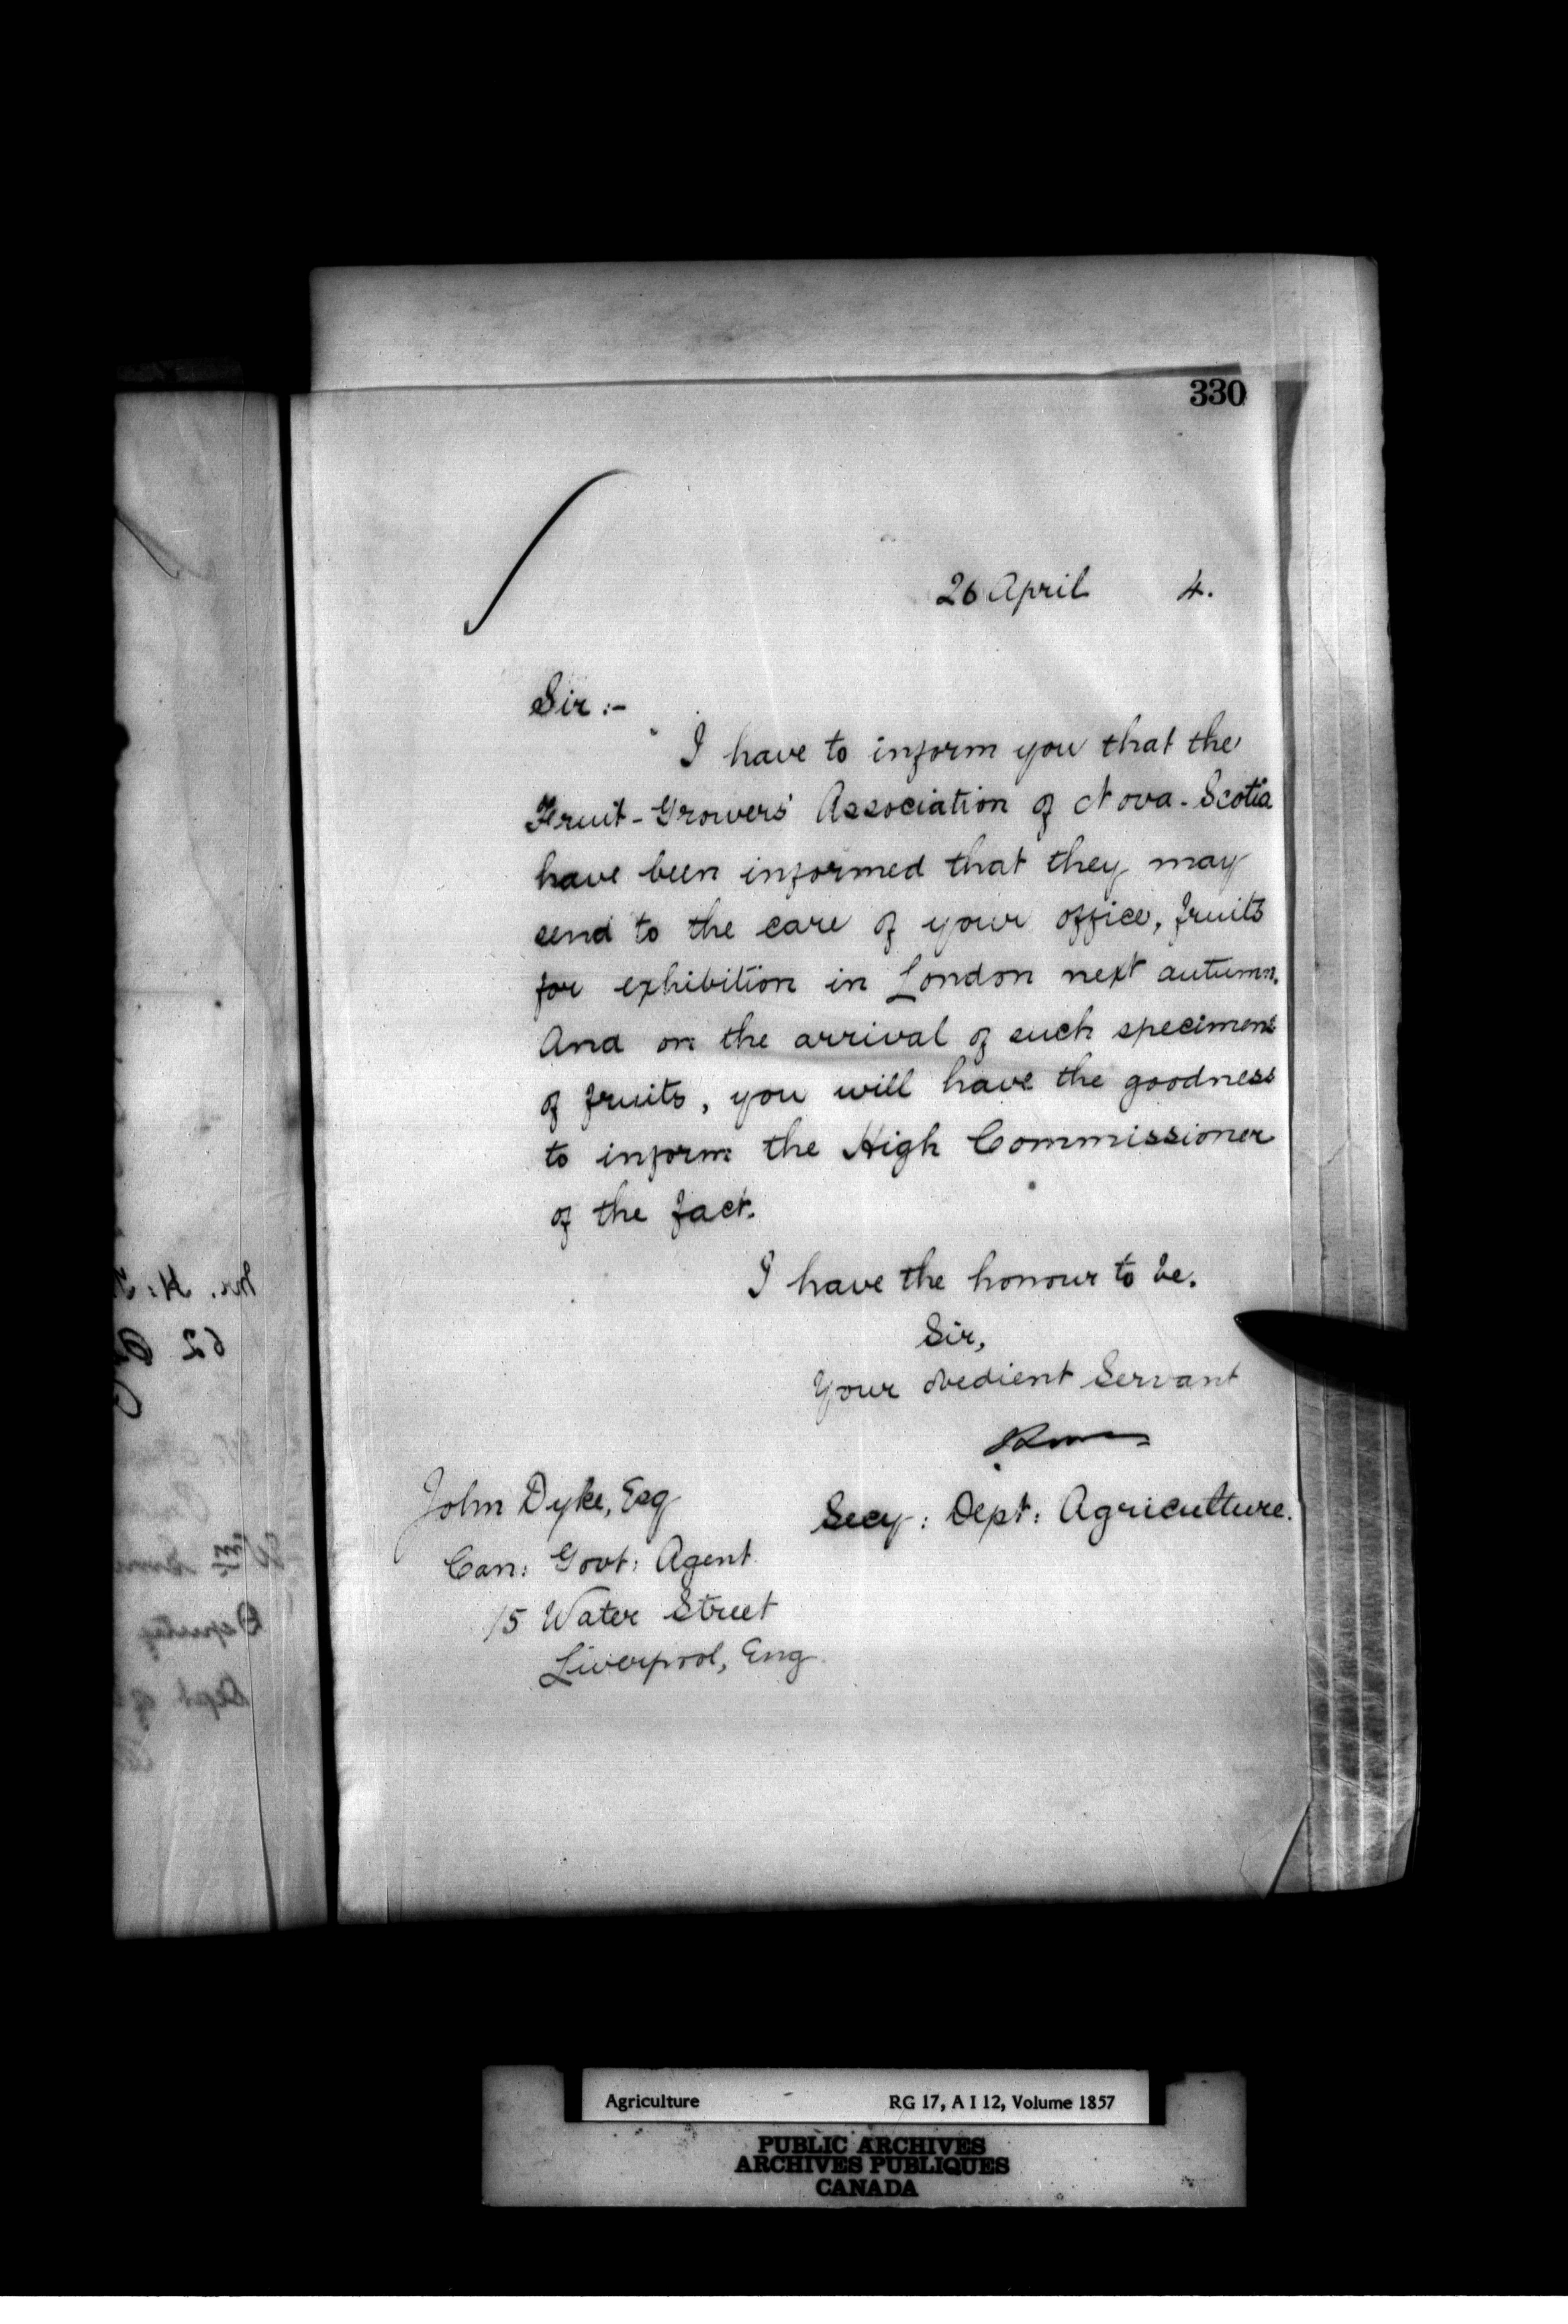 330
26 April 4.
Sir :-
I have to inform you that the
Fruit-Growers' Association of Nova-Scotia
have been informed that they may
send to the care of your office, fruits
for exhibition in London next autumn.
And on the arrival of such specimens
of fruits, you will have the goodness
to inform the High Commissioner
of the fact.
I have the honour to be.
Sir,
Your obedient Servant
Secy: Dept: Agriculture.
John Dyke, Esq
Can: Govt: Agent
15 Water Street
Liverpool, Eng.
Mr. H.
62
Wm
Deputy
Dept of
Agriculture RG 17, A I 12, Volume 1857
PUBLIC ARCHIVES
ARCHIVES PUBLIQUES
CANADA